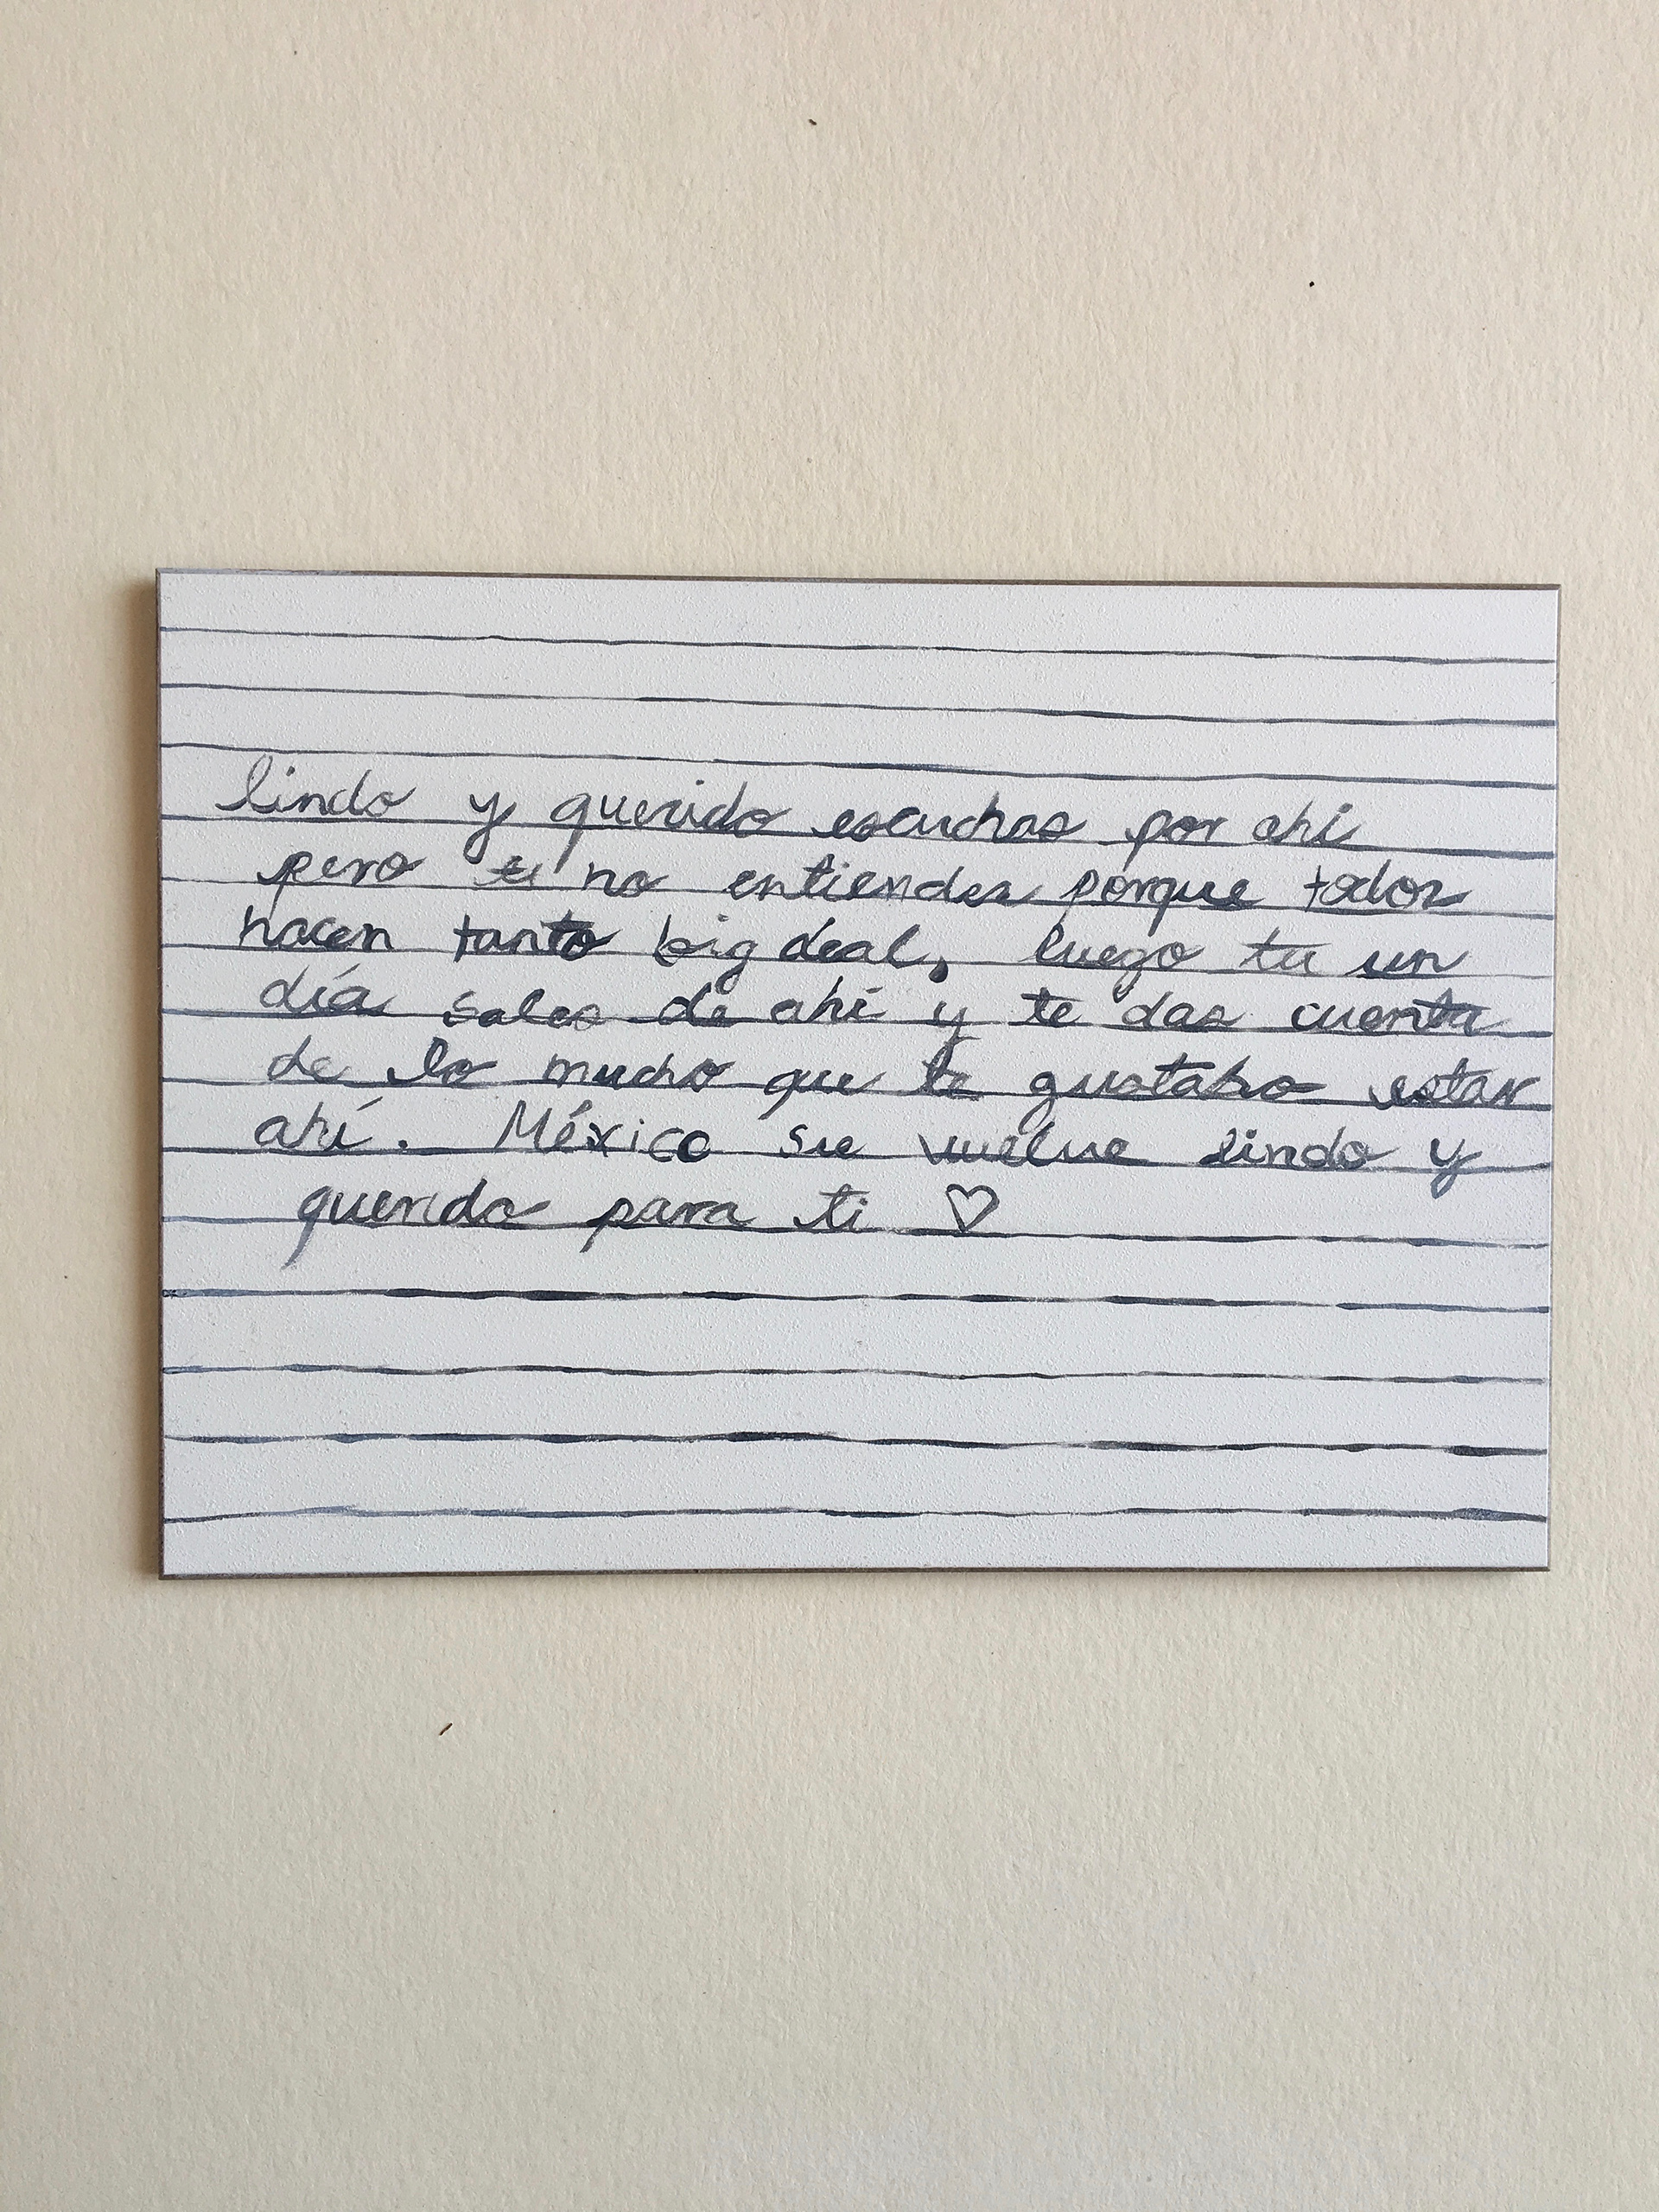 lindo y querido escuchas por ahí
pero tu no entiendes porque todos
hacen tanto big deal, luego tu un
día sales de ahí y te das cuenta
de lo mucho que te gustaba estar
ahí. México se vuelve lindo y
querido para ti ♡